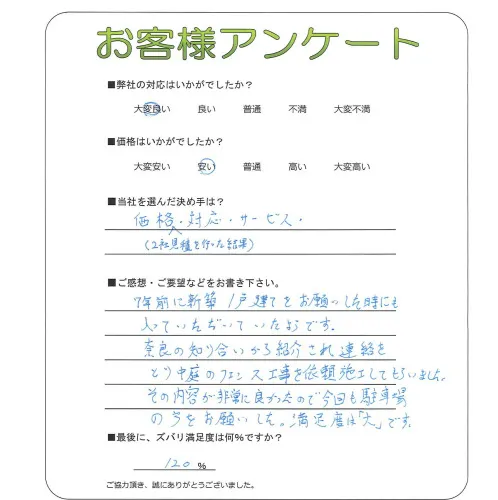 お客様アンケート
■弊社の対応はいかがでしたか?
大変良い 良い 普通 不満 大変不満
■価格はいかがでしたか?
大変安い 安い 普通 高い 大変高い
■当社を選んだ決め手は?
価格・対応・サービス・
(2社見積を行った結果)
■ご感想・ご要望などをお書き下さい。
7年前に新築1戸建てをお願いした時にも
入っていただいていたようです。
奈良の知り合いから紹介され連絡を
とり中庭のフェンス工事を依頼施工してもらいました。
その内容が非常に良かったので今回も駐車場
の方をお願いした。満足度は「大」です。
■最後に、ズバリ満足度は何%ですか?
120 %
ご協力頂き、誠にありがとうございました。